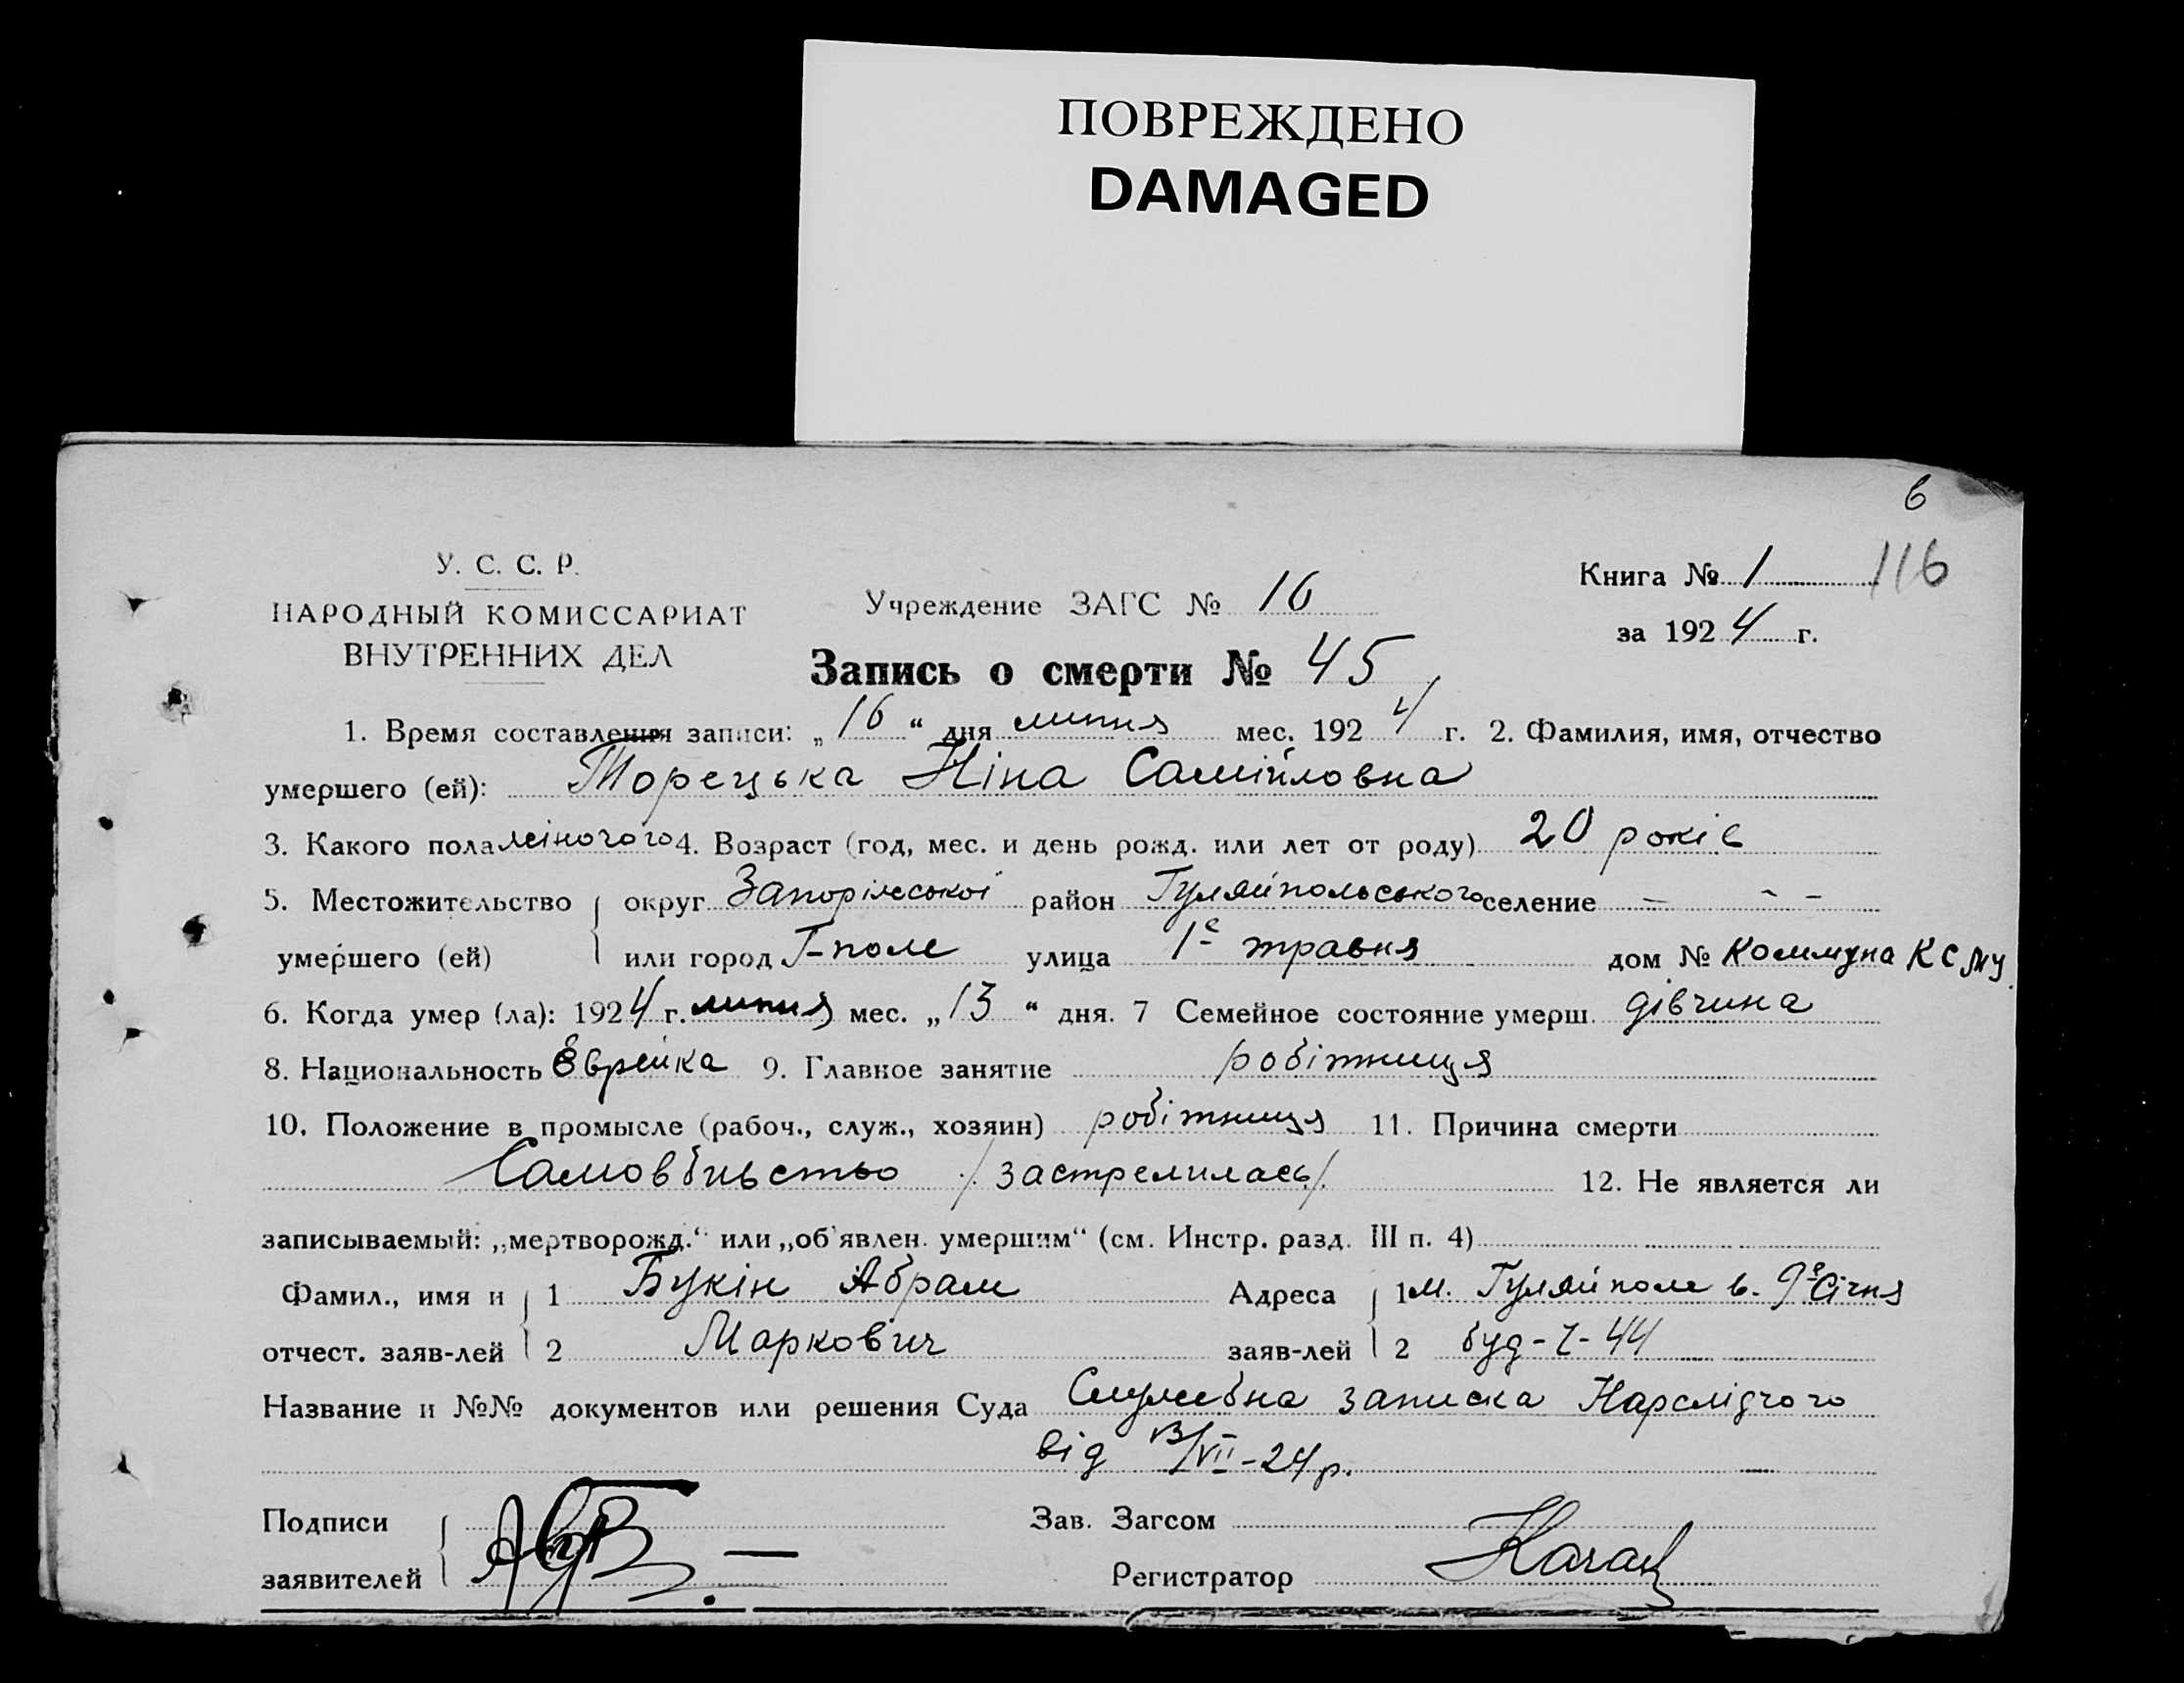 ПОВРЕЖДЕНО
DAMAGED
6
116
У. С. С. Р.
НАРОДНЫЙ КОМИССАРИАТ
ВНУТРЕННИХ ДЕЛ
Учреждение ЗАГС № 16
Книга № 1
за 1924 г.
Запись о смерти № 45
1. Время составления записи: „16“ дня липня мес. 1924 г. 2. Фамилия, имя, отчество
умершего (ей): Торецька Ніна Самійловна
3. Какого пола жіночого 4. Возраст (год, мес. и день рожд. или лет от роду) 20 років
5. Местожительство округ Запоріжської район Гуляйпольського селение — - -
умершего (ей) или город Г-поле улица 1е травня дом № Коммуна КСМУ.
6. Когда умер (ла): 1924 г. липня мес. „13“ дня. 7 Семейное состояние умерш. дівчина
8. Национальность Єврейка 9. Главное занятие робітниця
10. Положение в промысле (рабоч., служ., хозяин) робітниця 11. Причина смерти
Самовбивьство /застрелилась/. 12. Не является ли
записываемый: „мертворожд.“ или „об'явлен. умершим“ (см. Инстр. разд. III п. 4)
Фамил., имя и 1 Букін Абрам Адреса 1 м. Гуляйполе в. 9е Січня
отчест. заяв-лей 2 Маркович заяв-лей 2 буд-44
Название и №№ документов или решения Суда Службна записка Нарслідчого
від 13/VII-24р.
Подписи Зав. Загсом
заявителей Регистратор